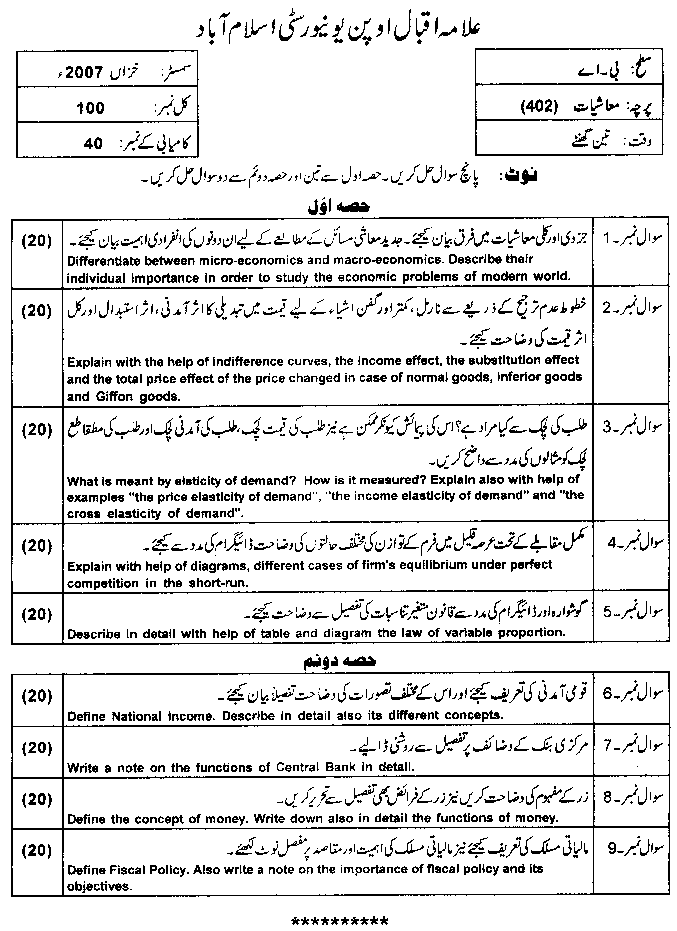 علامہ اقبال اوپن یونیورسٹی اسلام آباد
سطح: بی۔اے
پرچہ: معاشیات (402)
وقت: تین گھنٹے
سمسٹر: خزاں 2007ء
کل نمبر: 100
کامیابی کے نمبر: 40
نوٹ: پانچ سوال حل کریں۔ حصہ اول سے تین اور حصہ دوئم سے دو سوال حل کریں۔
حصہ اوّل
سوال نمبر۔1 جزوی اور کلی معاشیات میں فرق بیان کیجئے۔ جدید معاشی مسائل کے مطالعے کے لیے ان دونوں کی انفرادی اہمیت بیان کیجئے۔ (20)
Differentiate between micro-economics and macro-economics. Describe their
individual importance in order to study the economic problems of modern world.
سوال نمبر۔2 خطوط عدم ترجیح کے ذریعے سے نارمل، کمتر اور گفن اشیاء کے لیے قیمت میں تبدیلی کا اثر آمدنی، اثر استبدال اور کل (20)
اثر قیمت کی وضاحت کیجئے۔
Explain with the help of indifference curves, the income effect, the substitution effect
and the total price effect of the price changed in case of normal goods, inferior goods
and Giffon goods.
سوال نمبر۔3 طلب کی لچک سے کیا مراد ہے؟ اس کی پیمائش کیونکر ممکن ہے نیز طلب کی قیمت لچک، طلب کی آمدنی لچک اور طلب کی متقاطع (20)
لچک کو مثالوں کی مدد سے واضح کریں۔
What is meant by elsticity of demand? How is it measured? Explain also with help of
examples "the price elasticity of demand", "the income elasticity of demand" and "the
cross elasticity of demand".
سوال نمبر۔4 مکمل مقابلے کے تحت عرصہ قلیل میں فرم کے توازن کی مختلف حالتوں کی وضاحت ڈائیگرام کی مدد سے کیجئے۔ (20)
Explain with help of diagrams, different cases of firm's equilibrium under perfect
competition in the short-run.
سوال نمبر۔5 گوشوارہ اور ڈائیگرام کی مدد سے قانون متغیر تناسبات کی تفصیل سے وضاحت کیجئے۔ (20)
Describe in detail with help of table and diagram the law of variable proportion.
حصہ دوئم
سوال نمبر۔6 قومی آمدنی کی تعریف کیجئے اور اس کے مختلف تصورات کی وضاحت تفصیلاً بیان کیجئے۔ (20)
Define National Income. Describe in detail also its different concepts.
سوال نمبر۔7 مرکزی بنک کے وظائف پر تفصیل سے روشنی ڈالیے۔ (20)
Write a note on the functions of Central Bank in detail.
سوال نمبر۔8 زر کے مفہوم کی وضاحت کریں نیز زر کے فرائض بھی تفصیل سے تحریر کریں۔ (20)
Define the concept of money. Write down also in detail the functions of money.
سوال نمبر۔9 مالیاتی مسلک کی تعریف کیجئے نیز مالیاتی مسلک کی اہمیت اور مقاصد پر مفصل نوٹ لکھئے۔ (20)
Define Fiscal Policy. Also write a note on the importance of fiscal policy and its
objectives.
**********